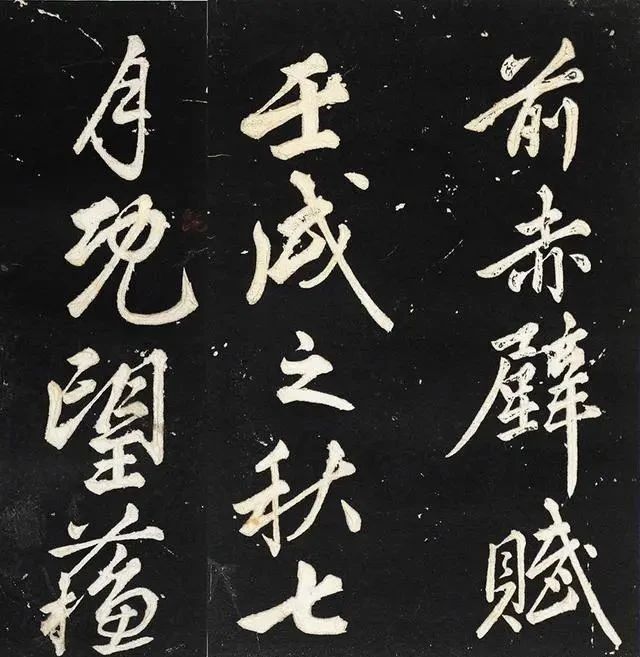 前赤壁賦
壬戌之秋七
月既望蘇